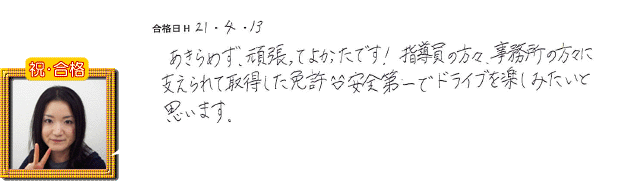 合格日 H 21・4・13
祝・合格
あきらめず、頑張ってよかったです！ 指導員の方々、事務所の方々に
支えられて取得した免許 安全第一でドライブを楽しみたいと
思います。